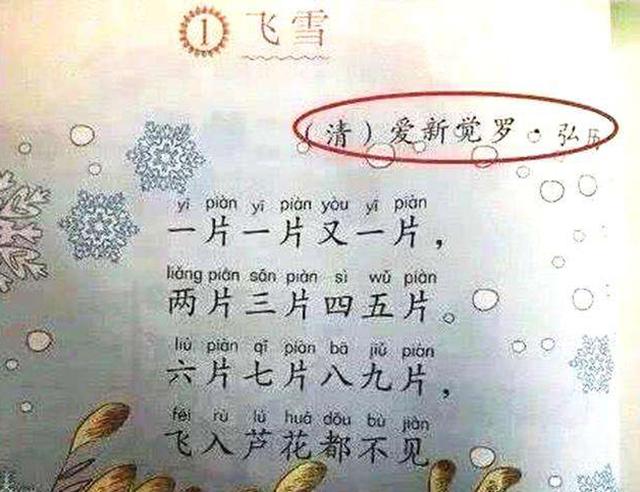 1 飞雪
（清）爱新觉罗·弘历
yí piàn yí piàn yòu yí piàn
一片一片又一片，
liǎng piàn sān piàn sì wǔ piàn
两片三片四五片。
liù piàn qī piàn bā jiǔ piàn
六片七片八九片，
fēi rù lú huā dōu bù jiàn
飞入芦花都不见